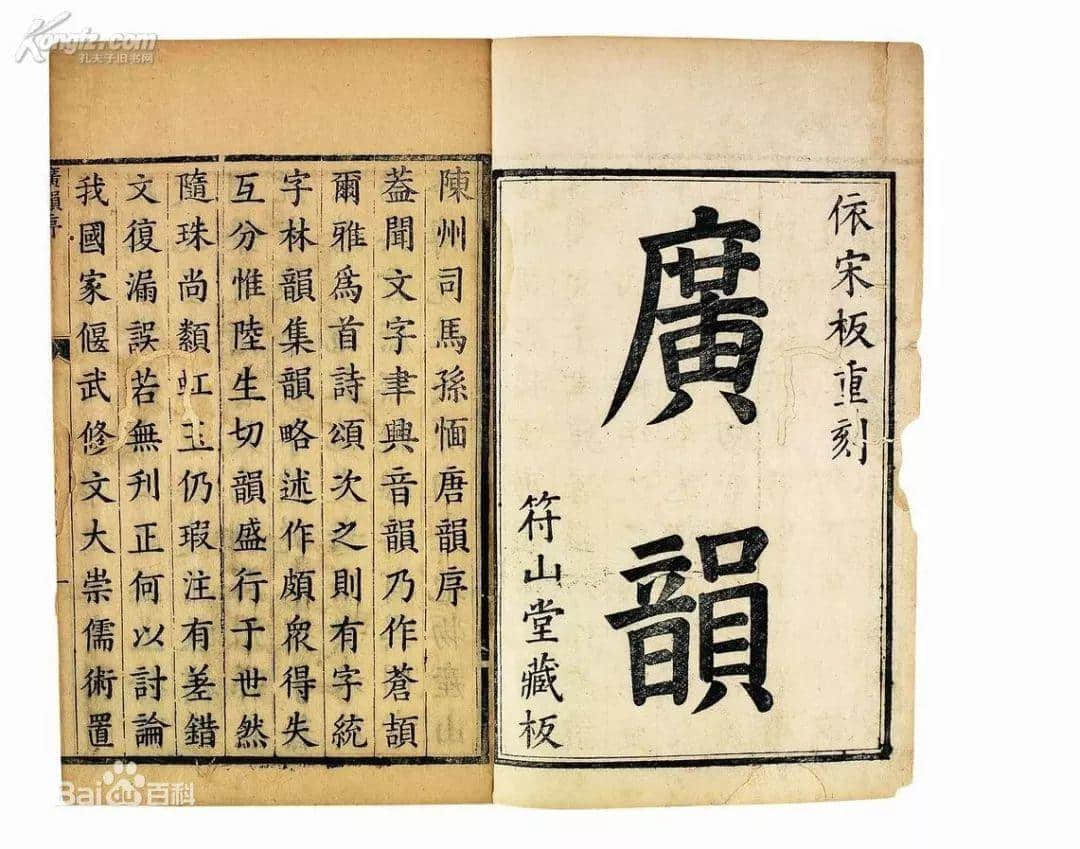 Kongfz.com
孔夫子旧书网
依宋板重刻
廣韻
符山堂藏板
陳州司馬孫愐唐韻序
葢聞文字聿興音韻乃作蒼頡
爾雅爲首詩頌次之則有字統
字林韻集韻略述作頗衆得失
互分惟陸生切韻盛行于世然
隨珠尚纇虹玉仍瑕注有差錯
文復漏誤若無刊正何以討論
我國家偃武修文大崇儒術置
廣韻序
一
Baidu百科